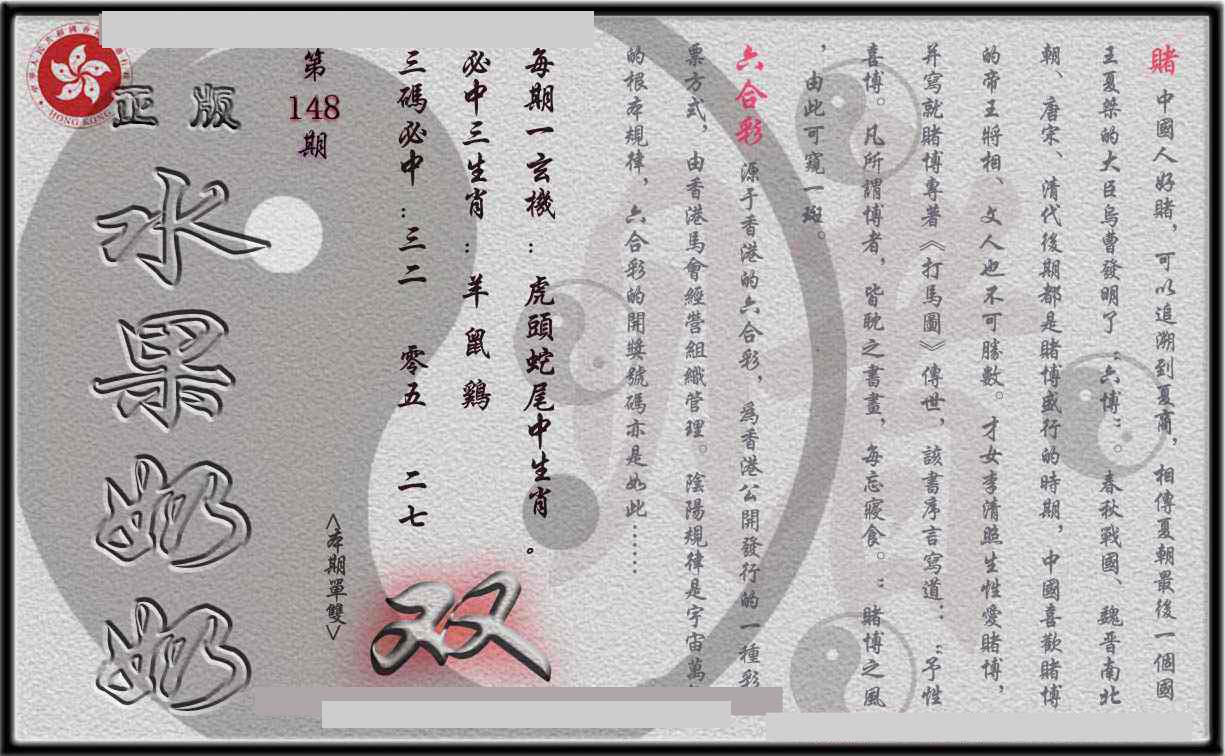 賭 中國人好賭，可以追溯到夏商，相傳夏朝最後一個國
王夏桀的大臣烏曹發明了“六博”。春秋戰國、魏晋南北
朝、唐宋、清代後期都是賭博盛行的時期，中國喜歡賭博
的帝王將相、文人也不可勝數。才女李清照生性愛賭博，
并寫就賭博專著《打馬圖》傳世，該書序言寫道：“予性
喜博。凡所謂博者，皆耽之書畫，每忘寢食。”賭博之風
，由此可窺一斑。
六合彩 源于香港的六合彩，為香港公開發行的一種彩
票方式，由香港馬會經營組織管理。陰陽規律是宇宙萬
的根本規律，六合彩的開獎號碼亦是如此……
每期一玄機：虎頭蛇尾中生肖。
必中三生肖：羊 鼠 鷄
三碼必中：三二 零五 二七
<本期單雙>
双
第
148
期
正版
水果奶奶
HONG KONG